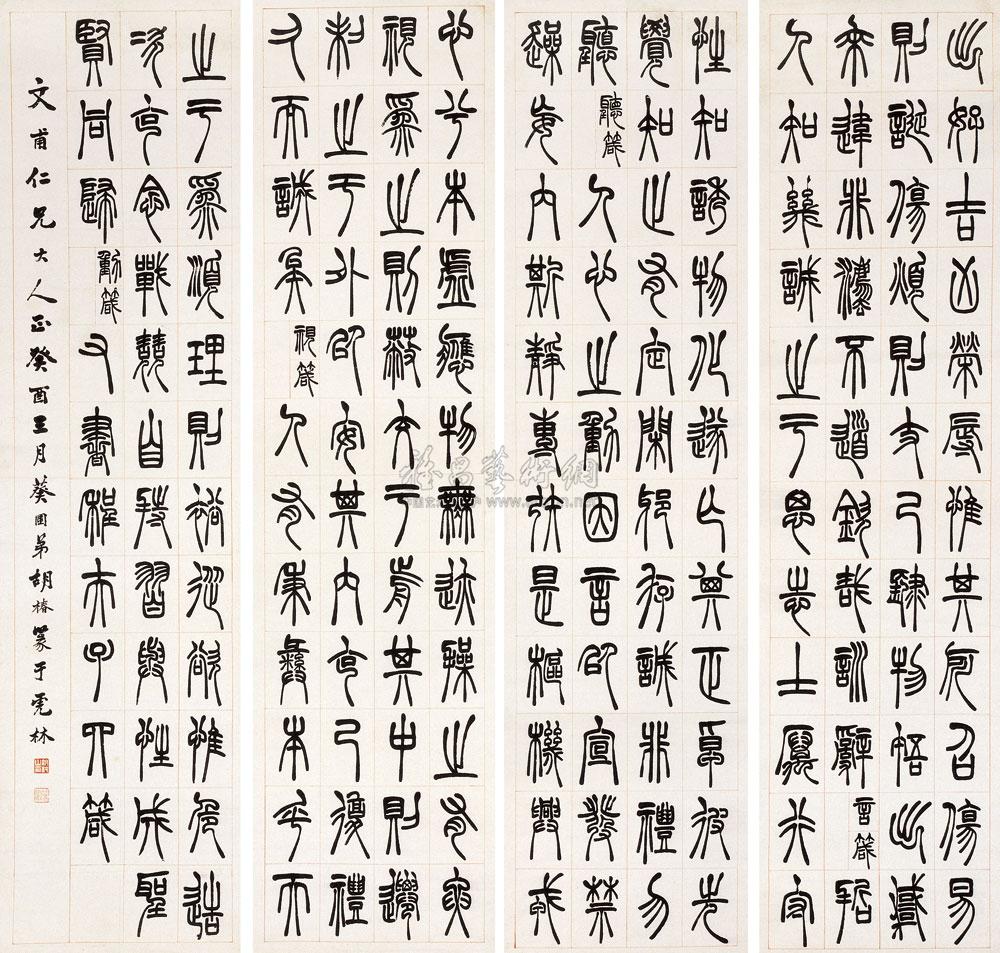 心兮本虛應物無迹操之有要
視爲之則蔽交于前其中則遷
制之于外以安其內克己復禮
久而誠矣視箴人有秉彝本乎天
性知誘物化遂亡其正卓彼先
覺知止有定閑邪存誠非禮勿
聽聽箴人心之動因言以宣發禁
躁妄內斯靜專矧是樞機興戎
出好吉凶榮辱惟其所召傷易
則誕傷煩則支己肆物忤出悖
來違非灋不道欽哉訓辭言箴哲
人知幾誠之于思志士厲行守
之于爲順理則裕從欲惟危造
次克念戰兢自持習與性成聖
賢同歸動箴右書程夫子四箴
文甫仁兄大人正癸酉月葵園弟胡椿篆于霓林